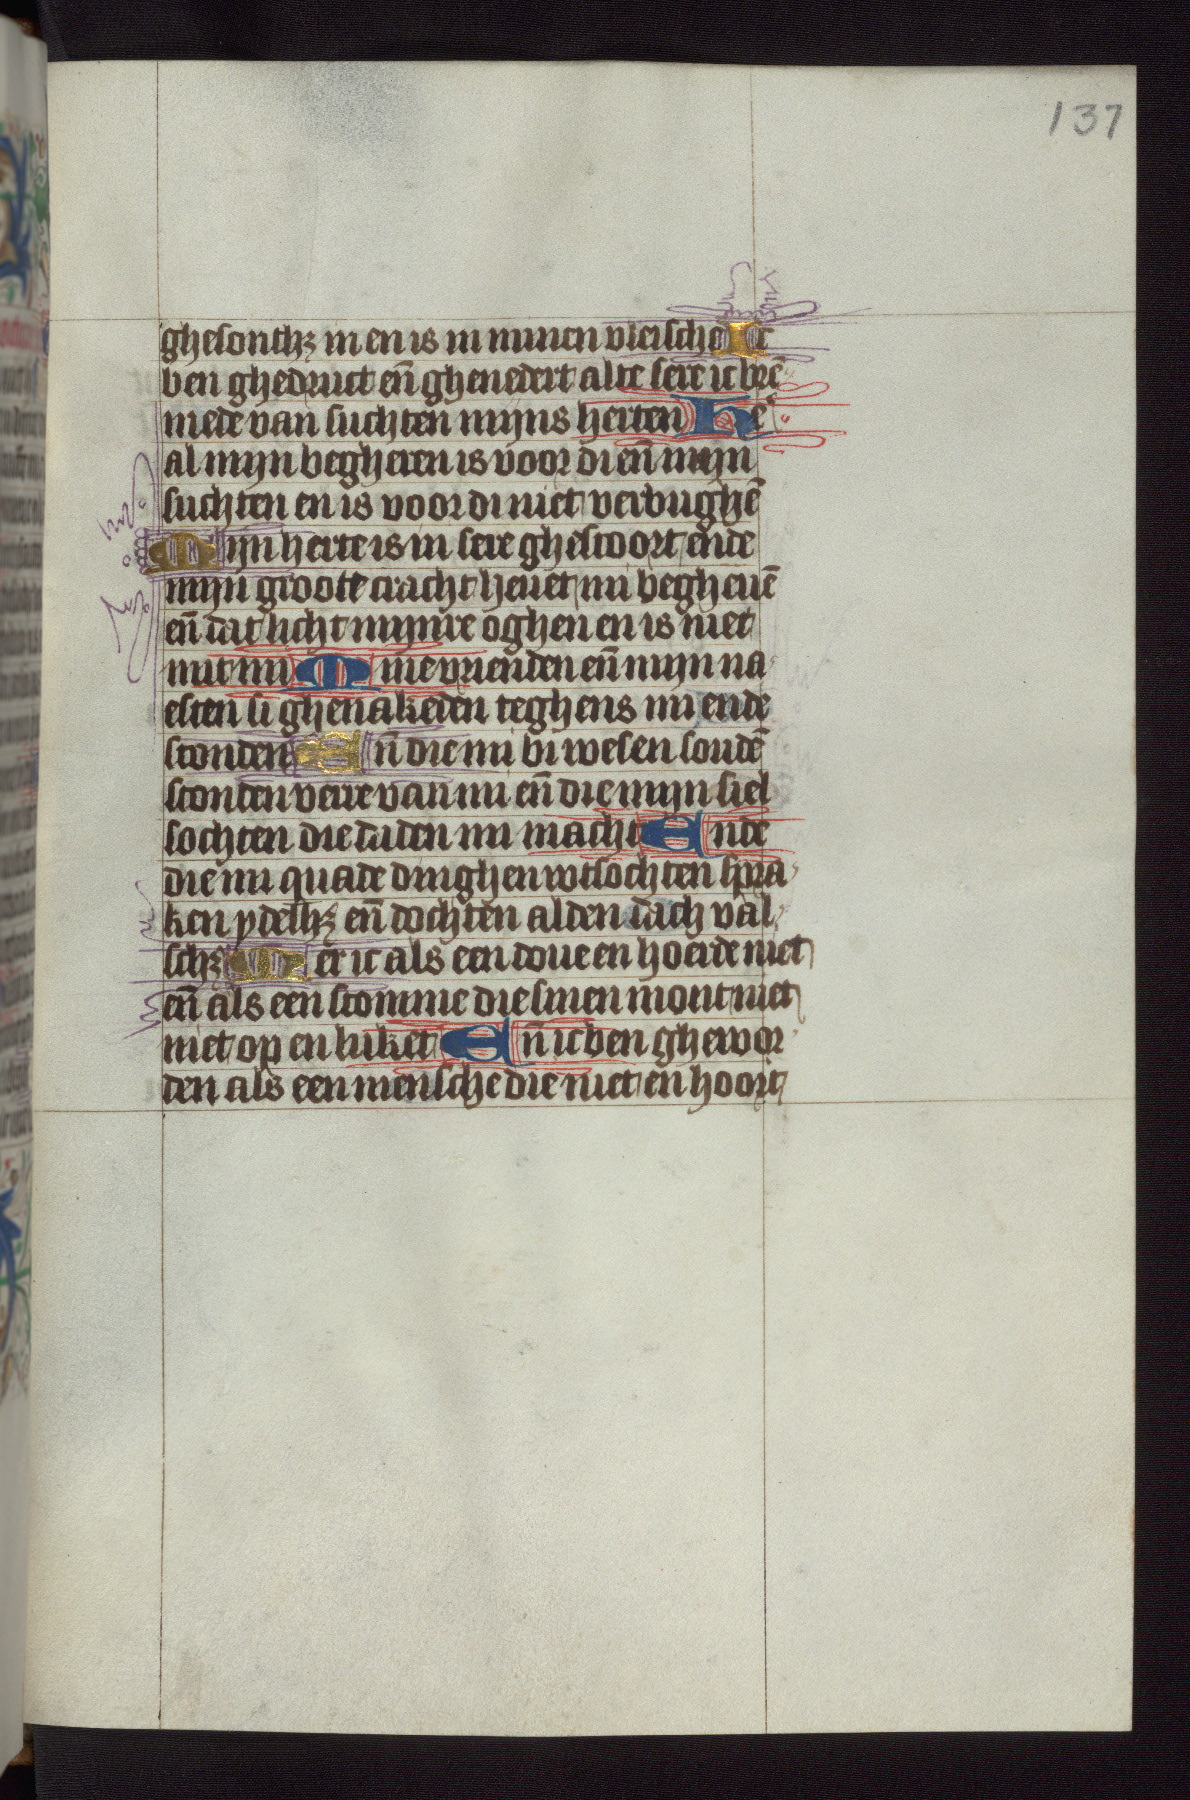 137
ghesonthꝫ in en is in minen vleische Ic
ben ghedruct en̄ ghenedert alte sere ic brē
mede van suchten mijns herten Hē
al mijn begheren is voor di en̄ mijn
suchten en is voor di niet verbughē
Mijn herte is in sere ghestoort ende
mijn groote cracht heuet mi begheuē
en̄ dat licht mijnre oghen en is niet
mit mi Mine vrienden en̄ mijn na
esten si ghenakeden teghens mi ende
stonden En̄ die mi bi wesen soudē
stonden verre van mi en̄ die mijn siel
sochten die daden mi macht Ende
die mi quade dinghen wtsochten spra
ken ydelhꝫ en̄ dochten alden dach val
schꝫ Mer ic als een doue en hoerde niet
en̄ als een stomme die sinen mont niet
niet op en luket En̄ ic ben ghewor
den als een mensche die niet en hoort